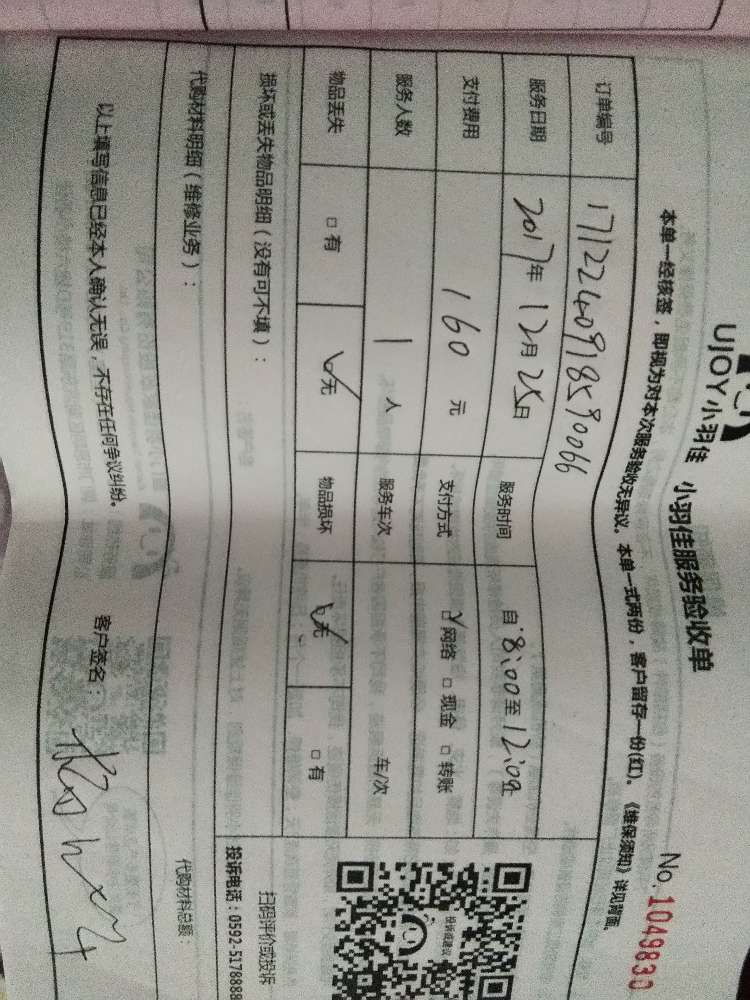 UJOY小羽佳 小羽佳服务验收单
No. 1049830
本单一经核签，即视为对本次服务验收无异议。本单一式两份，客户留存一份(红)。《维保须知》详见背面。
订单编号 1712240918590066
服务日期 2017年12月25日 服务时间 自:8:00至12:00
支付费用 160 元 支付方式 □网络 □现金 □转账
服务人数 1 人 服务车次 车/次
物品丢失 □有 □无 物品损坏 □无 □有
损坏或丢失物品明细（没有可不填）：
扫码评价或投诉
投诉电话：0592-5178888
代购材料明细（维修业务）： 代购材料总额：
以上填写信息已经本人确认无误，不存在任何争议纠纷。 客户签名：